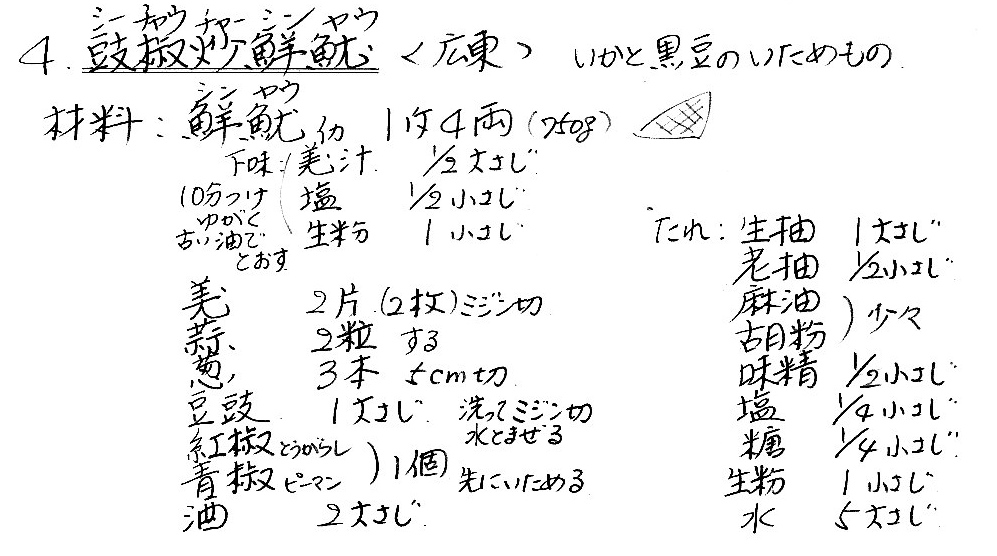 シーチャウチャーシンヤウ
4. 豉椒炒鮮魷 〈広東〉 いかと黒豆のいためもの
シンヤウ
材料: 鮮魷 イカ 1枚4両(250g)
下味: 美汁 1/2大さじ
塩 1/2小さじ
生粉 1小さじ
10分つけ
ゆがく
古い油で
とおす
美 2片(2枚)ミジン切
蒜 2粒 する
葱 3本 5cm切
豆豉 1大さじ 洗ってミジン切
水とまぜる
紅椒 とうがらし
青椒 ピーマン ) 1個 先にいためる
酒 2大さじ
たれ: 生抽 1大さじ
老抽 1/2小さじ
麻油
胡粉 ) 少々
味精 1/2小さじ
塩 1/4小さじ
糖 1/4小さじ
生粉 1小さじ
水 5大さじ